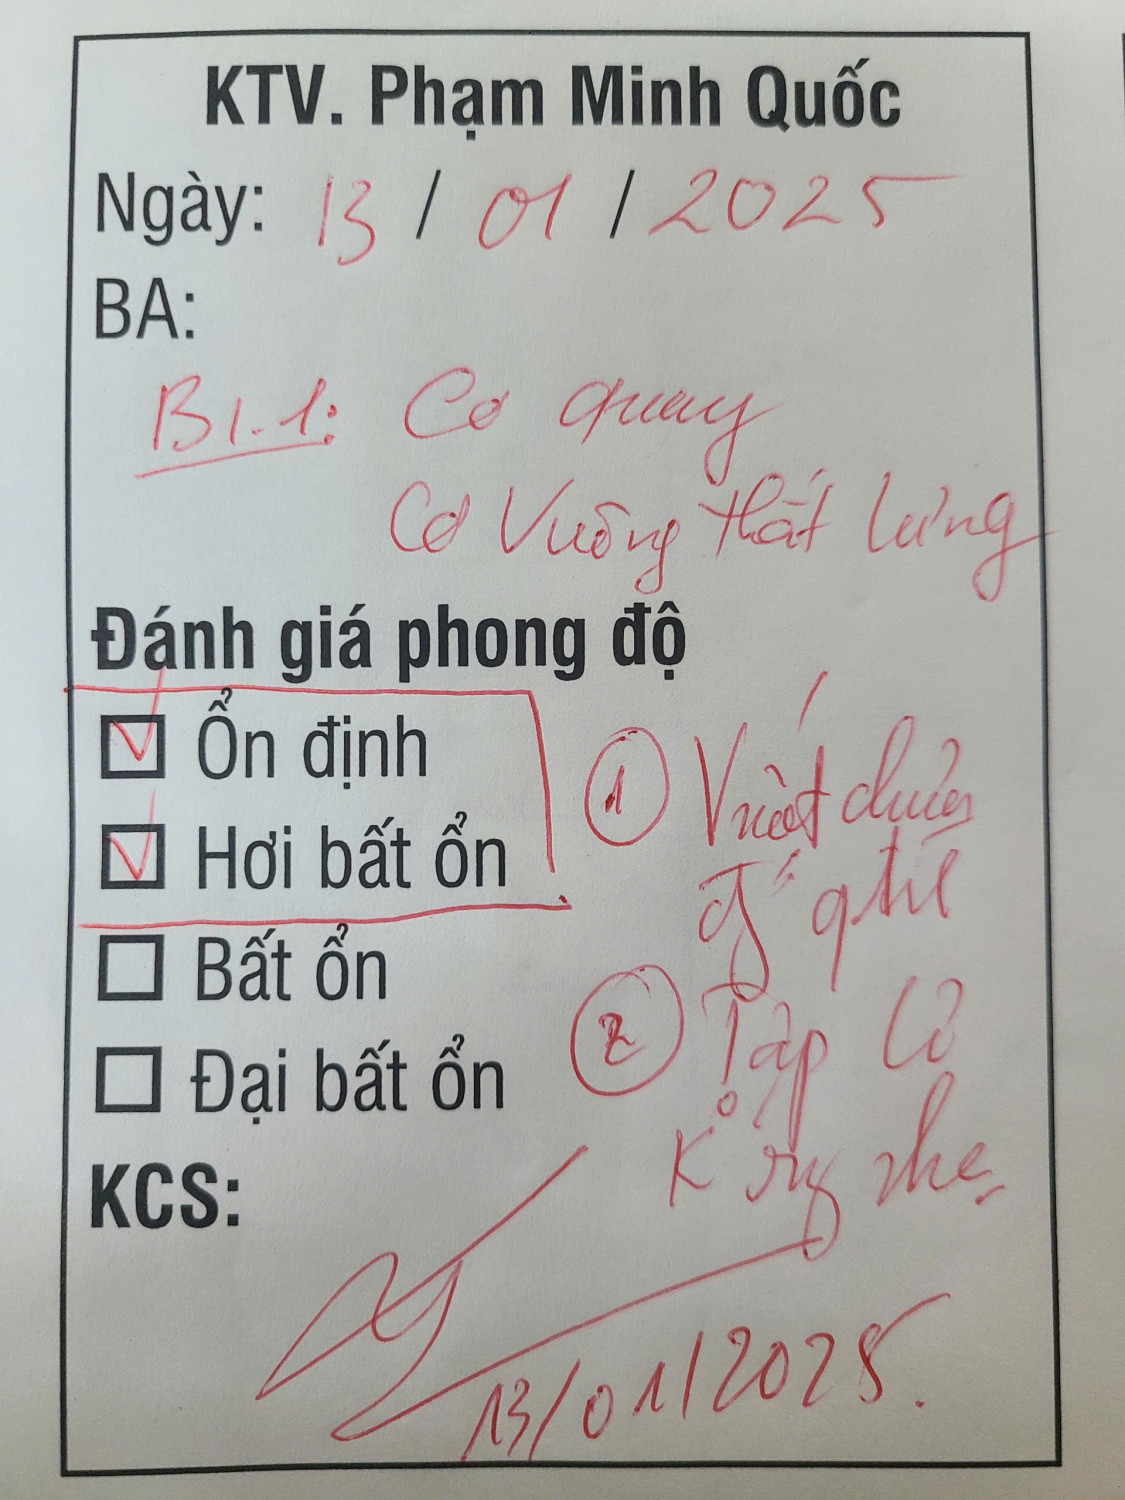 KTV. Phạm Minh Quốc
Ngày: 13 / 01 / 2025
BA:
B1.1: Cơ quay
Cơ vuông thắt lưng
Đánh giá phong độ
Ổn định
Hơi bất ổn
Bất ổn
Đại bất ổn
① Vướt chưa
ghế
② Tập cơ
nhẹ
KCS:
13/01/2025.